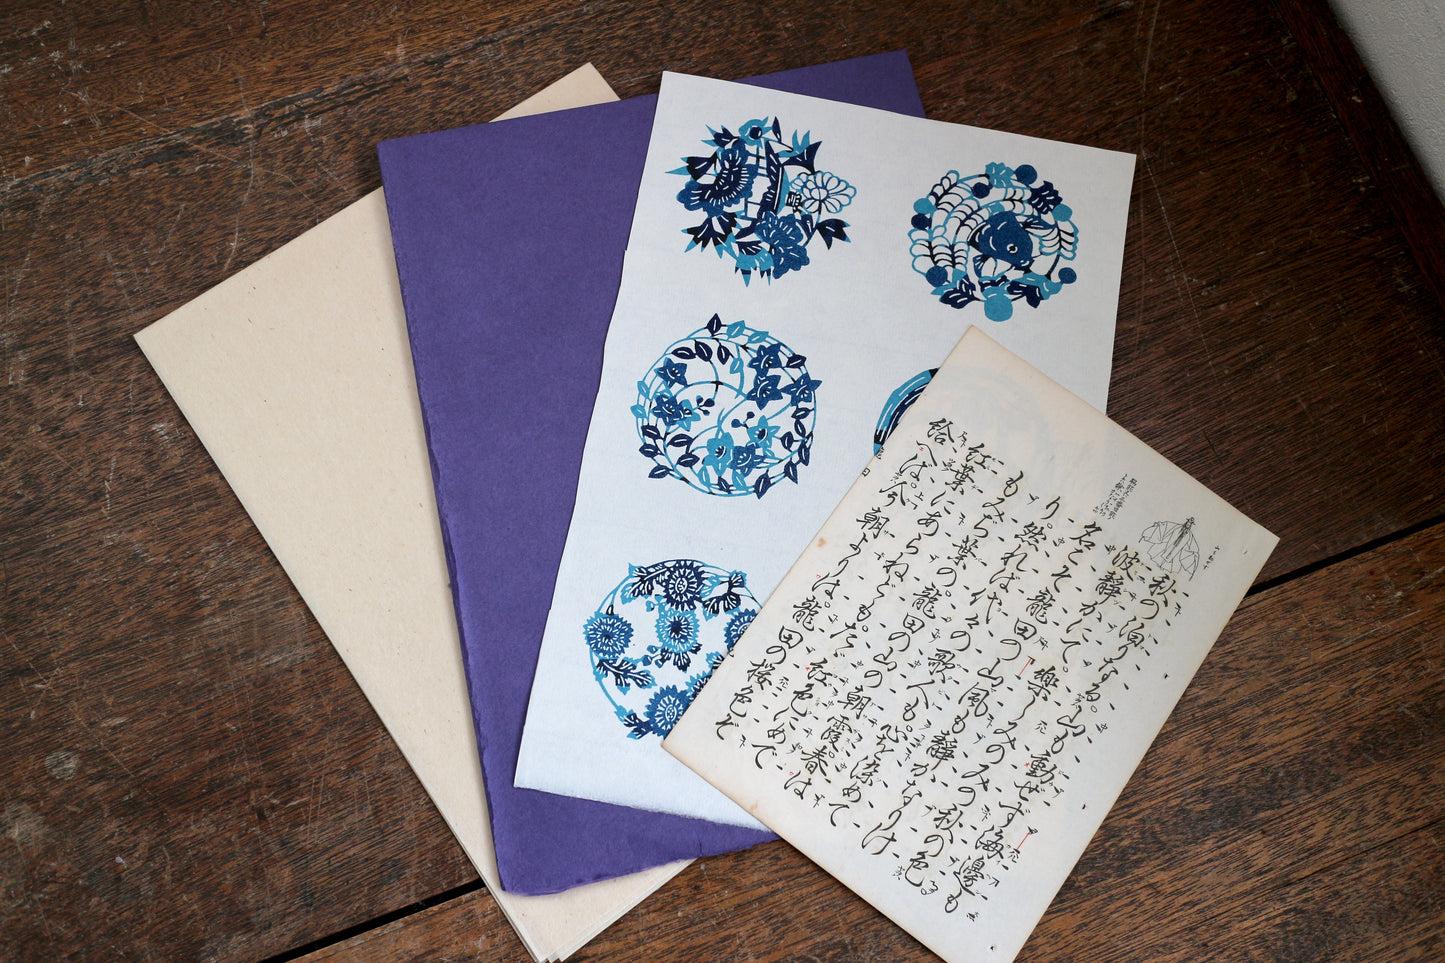 秋の泊りなる。山も動ぜず海邊も
波靜かにて。樂しみのみの秋の色
名こそ龍田の山風も靜かなりけ
り。然れば代々の歌人も。心を染めて
もみぢ葉の。龍田の山の朝霞。春は
紅葉にあらねども。たゞ紅色にめで
給へば。今朝よりは。龍田の桜色ぞ